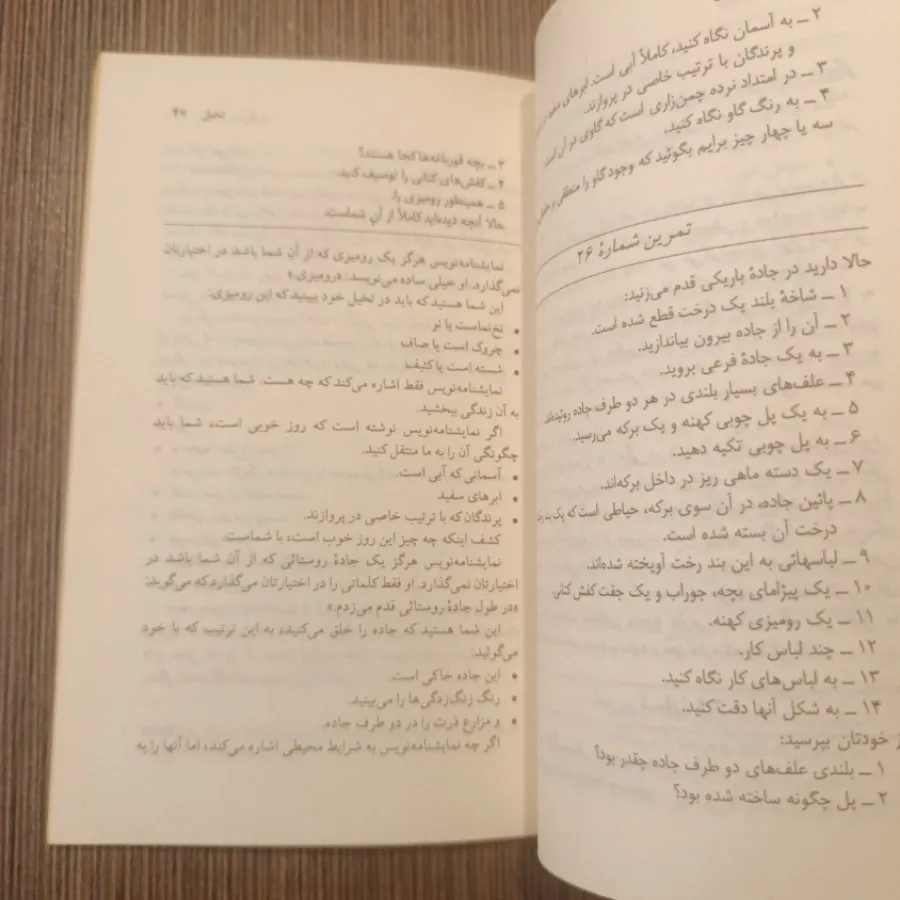 ۲ ــ به آسمان نگاه کنید، کاملاً آبی است. ابرهای سفید
و پرندگان با ترتیب خاصی در پروازند.
۳ ــ در امتداد نرده چمن‌زاری است که گاوی در آن
۴ ــ به رنگ گاو نگاه کنید.
سه یا چهار چیز برایم بگوئید که وجود گاو را منطقی
تمرین شمارهٔ ۲۶
حالا دارید در جادهٔ باریکی قدم می‌زنید:
۱ ــ شاخهٔ بلند یک درخت قطع شده است.
۲ ــ آن را از جاده بیرون بیاندازید.
۳ ــ به یک جادهٔ فرعی بروید.
۴ ــ علف‌های بسیار بلندی در هر دو طرف جاده روئیده‌اند.
۵ ــ به یک پل چوبی کهنه و یک برکه می‌رسید.
۶ ــ به پل چوبی تکیه دهید.
۷ ــ یک دسته ماهی ریز در داخل برکه‌اند.
۸ ــ پائین جاده، در آن سوی برکه، حیاطی است که یک بند
درخت آن بسته شده است.
۹ ــ لباسهائی به این بند رخت آویخته شده‌اند.
۱۰ ــ یک پیژامای بچه، جوراب و یک جفت کفش کتانی.
۱۱ ــ یک رومیزی کهنه.
۱۲ ــ چند لباس کار.
۱۳ ــ به لباس‌های کار نگاه کنید.
۱۴ ــ به شکل آنها دقت کنید.
از خودتان بپرسید:
۱ ــ بلندی علف‌های دو طرف جاده چقدر بود؟
۲ ــ پل چگونه ساخته شده بود؟
تخیل
۳ ــ بچه قورباغه‌ها کجا هستند؟
۴ ــ کفش‌های کتانی را توصیف کنید.
۵ ــ همینطور رومیزی را.
حالا آنچه دیده‌اید کاملاً از آنِ شماست.
نمایشنامه‌نویس هرگز یک رومیزی که از آنِ شما باشد در اختیارتان
نمی‌گذارد. او خیلی ساده می‌نویسد: «رومیزی.»
این شما هستید که باید در تخیل خود ببینید که این رومیزی:
• نخ‌نماست یا نو
• چروک است یا صاف
• شسته است یا کثیف
نمایشنامه‌نویس فقط اشاره می‌کند که چه هست. شما هستید که باید
به آن زندگی ببخشید.
اگر نمایشنامه‌نویس نوشته است که روز خوبی است، شما باید
چگونگی آن را به ما منتقل کنید.
• آسمانی که آبی است.
• ابرهای سفید
• پرندگان که با ترتیب خاصی در پروازند.
کشف اینکه چه چیز این روز خوب است، با شماست.
نمایشنامه‌نویس هرگز یک جادهٔ روستائی که از آنِ شما باشد در
اختیارتان نمی‌گذارد. او فقط کلماتی را در اختیارتان می‌گذارد که می‌گوید:
«در طول جادهٔ روستائی قدم می‌زدم.»
این شما هستید که جاده را خلق می‌کنید، به این ترتیب که با خود
می‌گوئید:
• این جاده خاکی است.
• رنگ زنگ‌زدگی‌ها را می‌بینید.
• و مزارع ذرت را در دو طرف جاده.
اگر چه نمایشنامه‌نویس به شرایط محیطی اشاره می‌کند، اما آنها را به